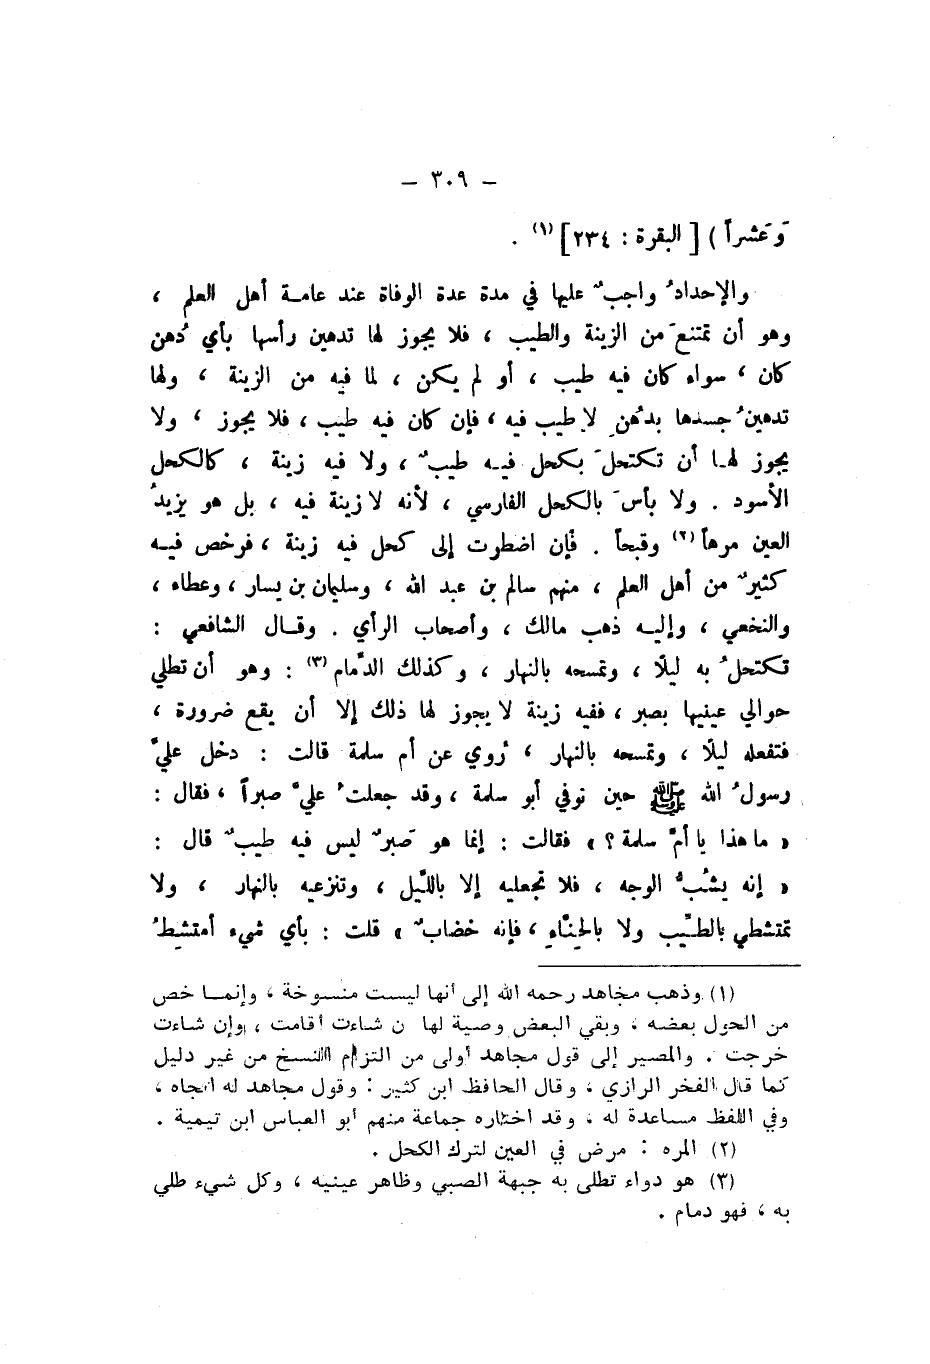 – ٣٠٩ –
وَعَشراً ) [ البقرة : ٢٣٤ ] (١) .
والإحدادُ واجبٌ عليها في مدة عدة الوفاة عند عامة أهل العلم ،
وهو أن تمتنعَ من الزينة والطيب ، فلا يجوز لها تدهين رأسها بأي دُهن
كان ، سواء كان فيه طيب ، أو لم يكن ، لما فيه من الزينة ، ولها
تدهينُ جسدها بدُهنٍ لا طيب فيه ، فإن كان فيه طيب ، فلا يجوز ، ولا
يجوز لها أن تكتحلَ بكحل فيه طيبٌ ، ولا فيه زينة ، كالكحل
الأسود . ولا بأسَ بالكحل الفارسي ، لأنه لا زينة فيه ، بل هو يزيدُ
العين مرهاً (٢) وقبحاً . فإن اضطرت إلى كحل فيه زينة ، فرخص فيه
كثيرٌ من أهل العلم ، منهم سالم بن عبد الله ، وسليمان بن يسار ، وعطاء ،
والنخعي ، وإليه ذهب مالك ، وأصحاب الرأي . وقال الشافعي :
تكتحلُ به ليلاً ، وتمسحه بالنهار ، وكذلك الدِّمام (٣) : وهو أن تطلي
حوالي عينيها بصبر ، ففيه زينة لا يجوز لها ذلك إلا أن يقع ضرورة ،
فتفعله ليلاً ، وتمسحه بالنهار ، رُوي عن أم سلمة قالت : دخل عليَّ
رسولُ الله ﷺ حين توفي أبو سلمة ، وقد جعلتُ عليَّ صبراً ، فقال :
« ما هذا يا أمَّ سلمة ؟ » فقالت : إنما هو صَبرٌ ليس فيه طيبٌ قال :
« إنه يشُبُّ الوجه ، فلا تجعليه إلا بالليل ، وتنزعيه بالنهار ، ولا
تمتشطي بالطيِّب ولا بالحِنَّاءِ ، فإنه خضابٌ » قلت : بأي شيء أمتشطُ
(١) وذهب مجاهد رحمه الله إلى أنها ليست منسوخة ، وإنما خص
من الحول بعضه ، وبقي البعض وصية لها ن شاءت أقامت ، وإن شاءت
خرجت . والمصير إلى قول مجاهد أولى من التزام النسخ من غير دليل
كما قال الفخر الرازي ، وقال الحافظ ابن كثير : وقول مجاهد له اتجاه ،
وفي اللفظ مساعدة له ، وقد اختاره جماعة منهم أبو العباس ابن تيمية .
(٢) المره : مرض في العين لترك الكحل .
(٣) هو دواء تطلى به جبهة الصبي وظاهر عينيه ، وكل شيء طلي
به ، فهو دمام .